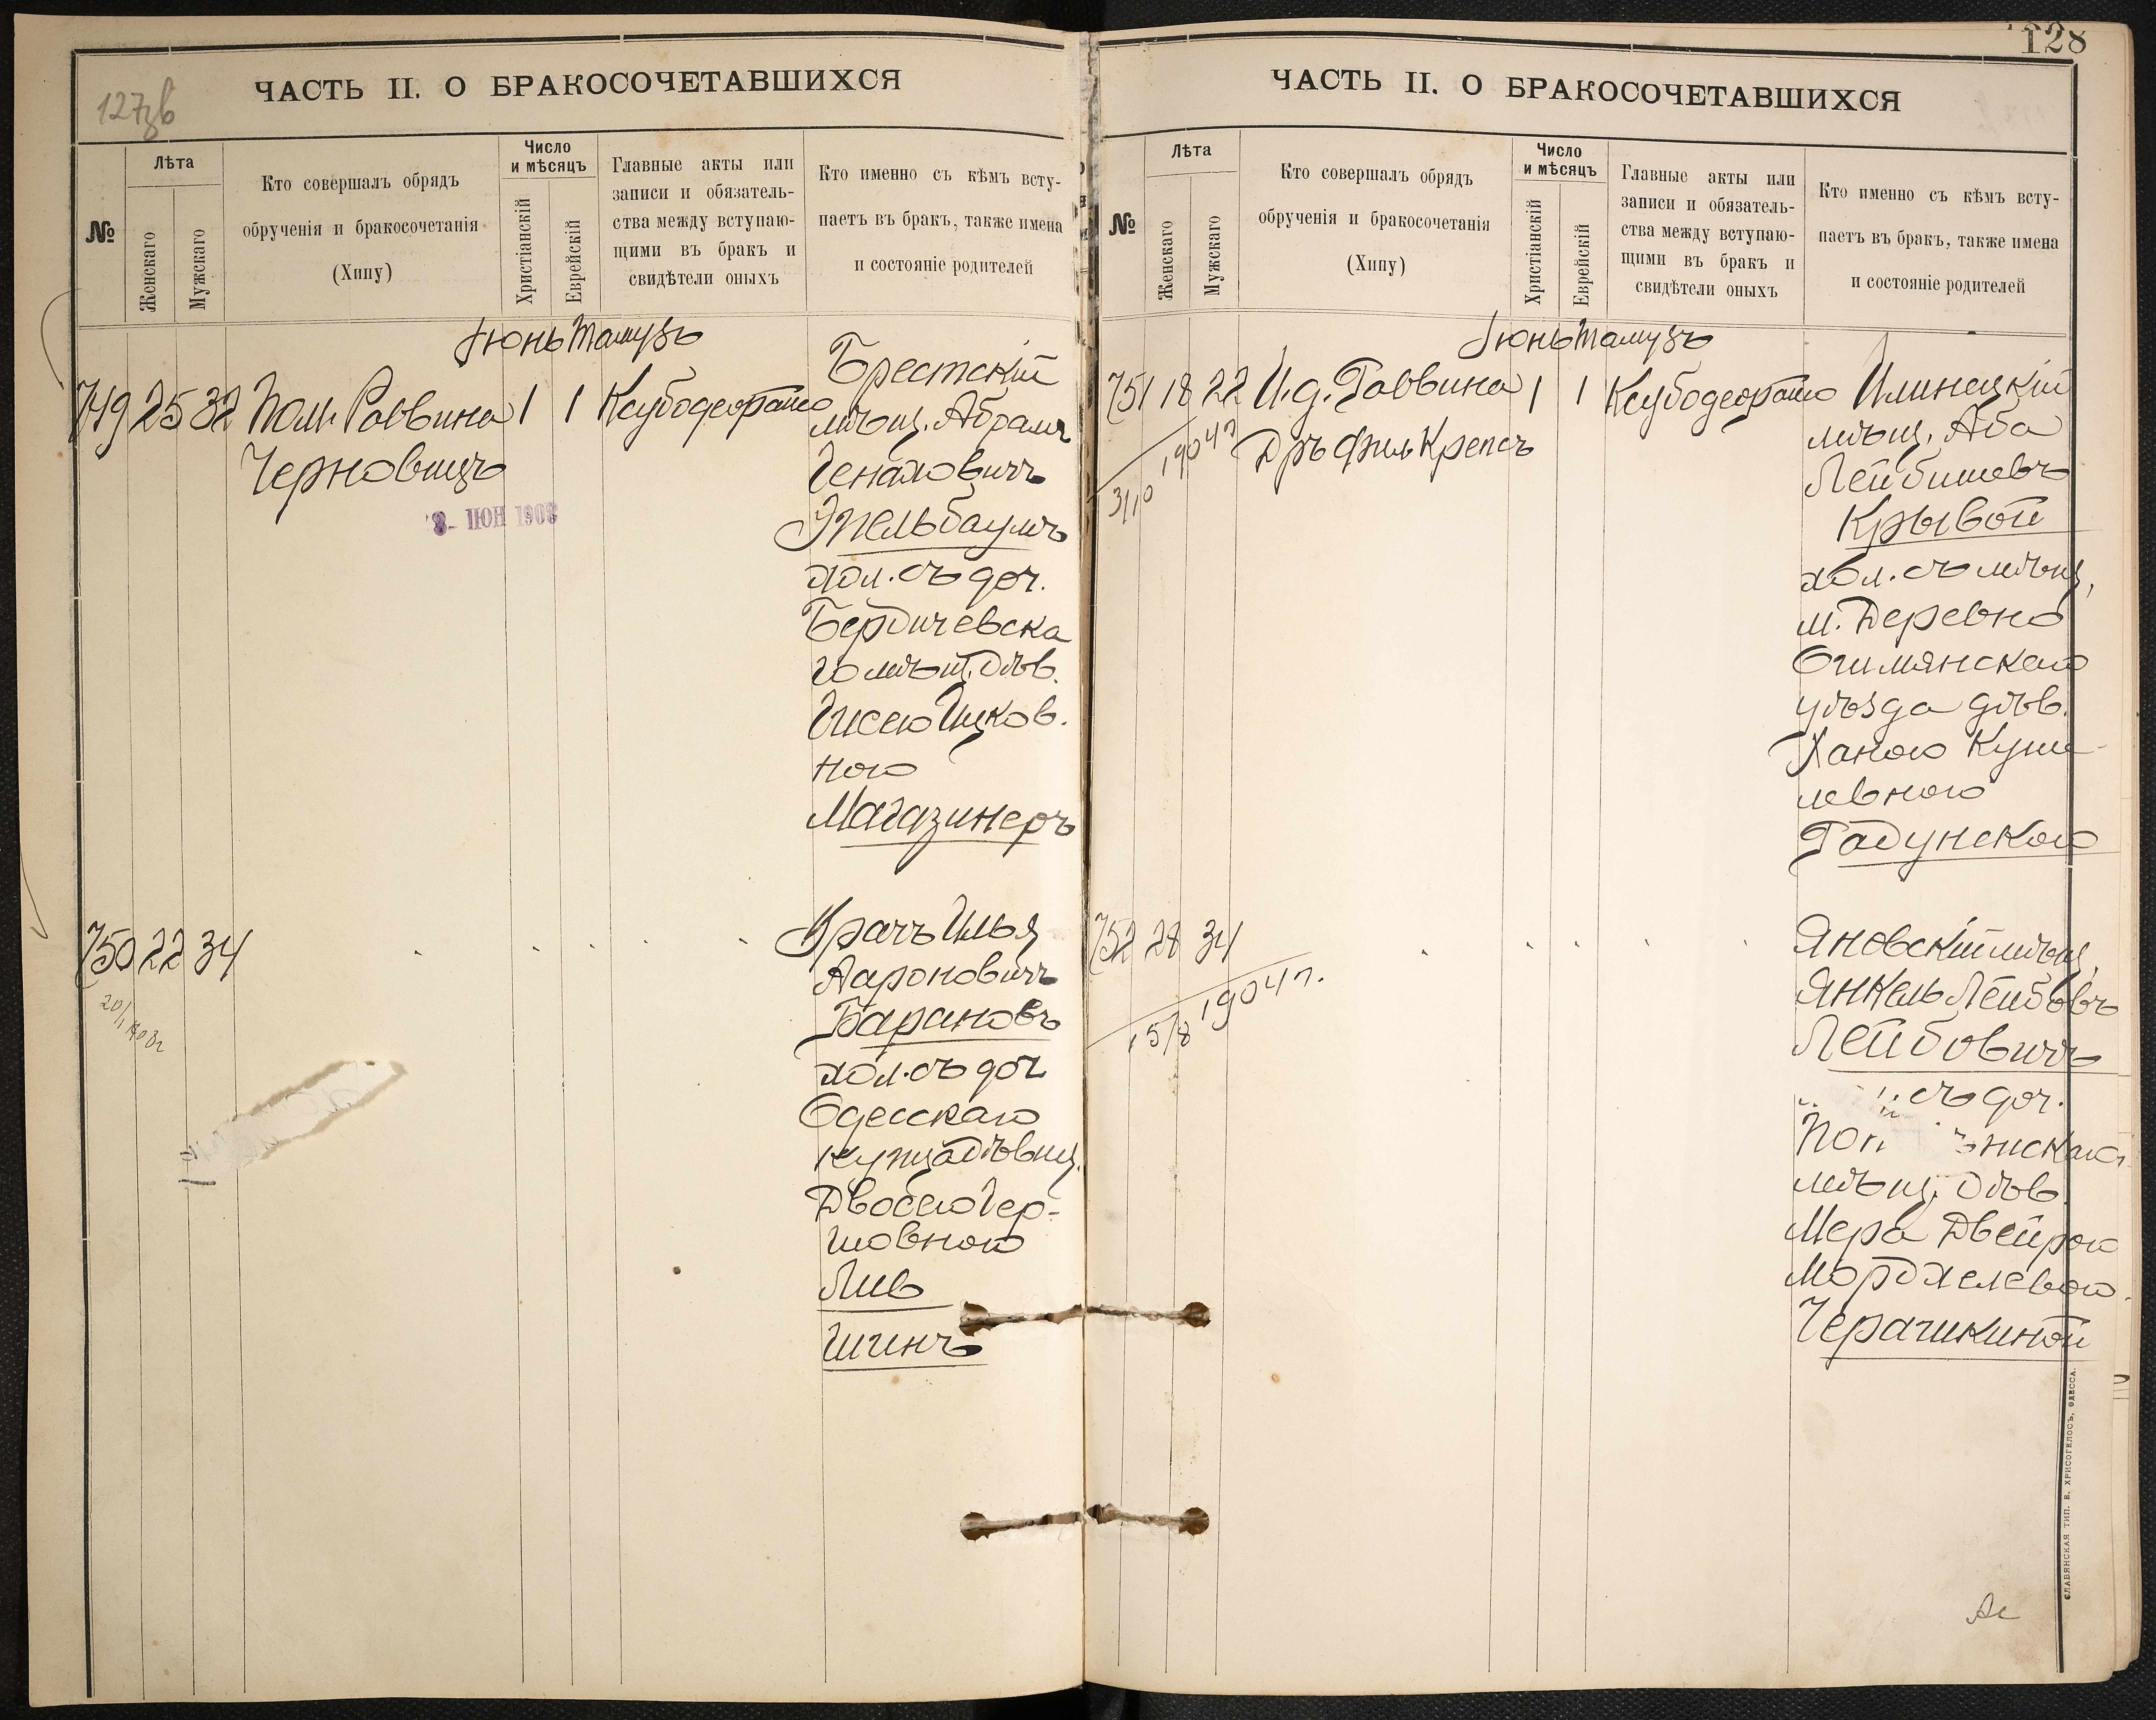 127зв
ЧАСТЬ II. О БРАКОСОЧЕТАВШИХСЯ
№
Лѣта
Женскаго
Мужскаго
Кто совершалъ обрядъ
обрученія и бракосочетанія
(Хипу)
Число
и мѣсяцъ
Христіанскій
Еврейскій
Главные акты или
записи и обязатель-
ства между вступаю-
щими въ бракъ и
свидѣтели оныхъ
Кто именно съ кѣмъ всту-
паетъ въ бракъ, также имена
и состояніе родителей
Іюнь Тамузъ
749 25 32 Пом. Раввина 1 1
Черновицъ
8- ІЮН 1903
Брестскій
мѣщ. Абрамъ
Генаховичъ
Эпельбаумъ
хол. съ доч.
Бердичевска
го мѣщ. дѣв.
Гисею Ицков.
ною
Магазинеръ
750 22 34
Врачъ Илья
Аароновичъ
Барановъ
хол. съ доч
Одесскаго
купца дѣвиц.
Двосею Гер-
шовною
Лив
шинъ
128
ЧАСТЬ II. О БРАКОСОЧЕТАВШИХСЯ
№
Лѣта
Женскаго
Мужскаго
Кто совершалъ обрядъ
обрученія и бракосочетанія
(Хипу)
Число
и мѣсяцъ
Христіанскій
Еврейскій
Главные акты или
записи и обязатель-
ства между вступаю-
щими въ бракъ и
свидѣтели оныхъ
Кто именно съ кѣмъ всту-
паетъ въ бракъ, также имена
и состояніе родителей
Іюнь Тамузъ
751 18 22 И.д. Раввина 1 1
Дръ фил Крепсъ
3/10 1904 г
Илинецкій
мѣщ. Аба
Лейбишевъ
Крывой
хол. съ мѣщ.
м. Деревно
Ошмянскаго
уѣзда дѣв.
Ханою Куше
левною
Радунскою
752 28 34
15/8 1904 г.
Яновскій мѣщ.
Янкель Лейбовъ
Лейбовичъ
съ доч.
мѣщ. дѣв.
Мера Двейрою
Мордхелевою
Черашкиной
СЛАВЯНСКАЯ ТИП. Е. ХРИСОГЕЛОСЪ, ОДЕССА.